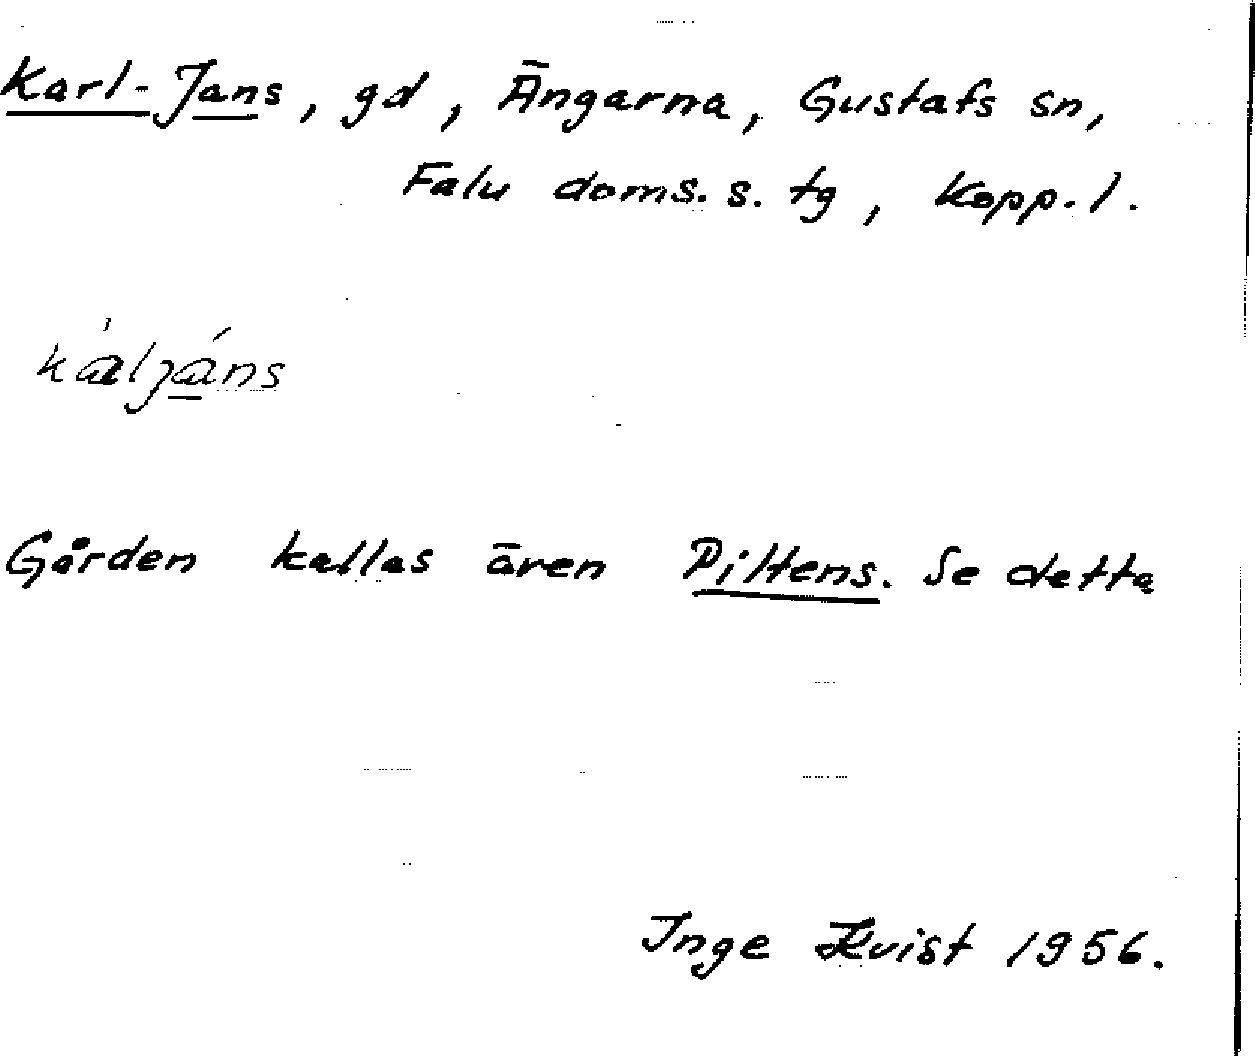 Karl-Jans, gd, Ängarna, Gustafs sn,
Falu doms. s. tg, Kopp. l.
kàljáns
Gården kallas även Piltens. Se detta
Inge Kvist 1956.